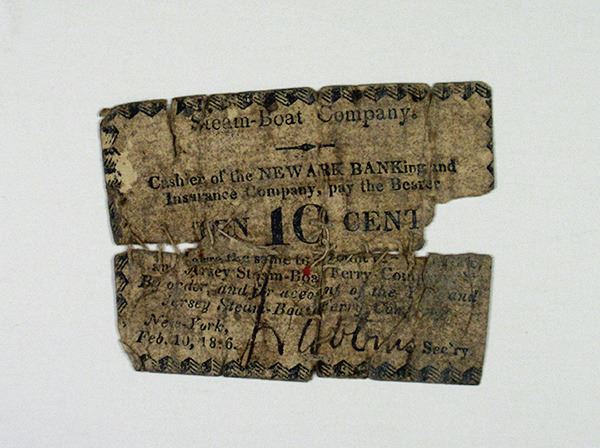 Steam-Boat Company.
Cashier of the NEWARK BANKing and
Insurance Company, pay the Bearer
TEN 10 CENT
the same to
and Jersey Steam-Boat Ferry Comp
By order, and for account of the and
Jersey Steam-Boat Ferry Company
New-York,
Feb. 10, 18 6. Sec'ry